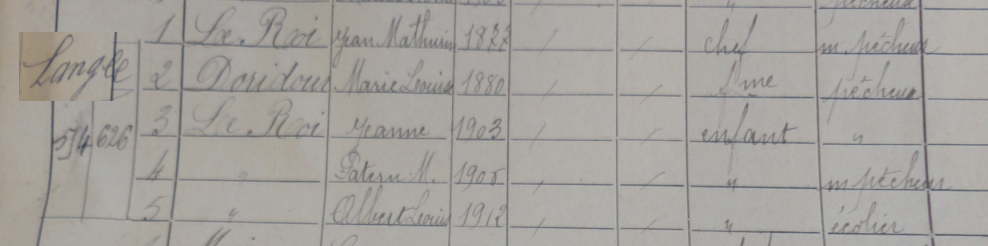 1 Le Roi Jean Mathurin 1877 / / chef m pêcheur
Langle 2 Doridour Marie Louise 1880 / / fme pêcheur
3 Le Roi Jeanne 1903 / / enfant "
514 626
4 " Patern M. 1905 / / " m pêcheur
5 " Albert Louis 1912 / / " écolier